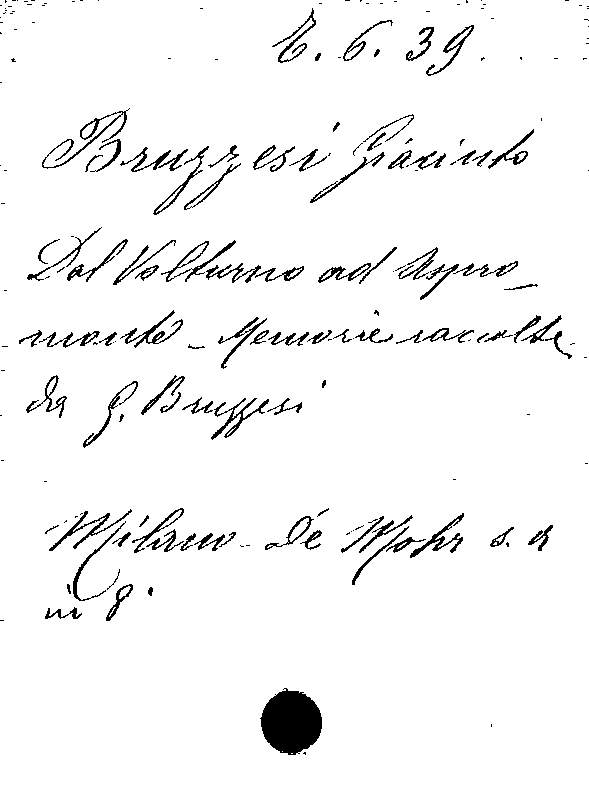 E. 6. 39.
Bruzzesi Giacinto
Dal Volturno ad Aspro_
monte _ Memorie raccolte
da G. Bruzzesi
Milano - De Mohr s. a
in 8°.